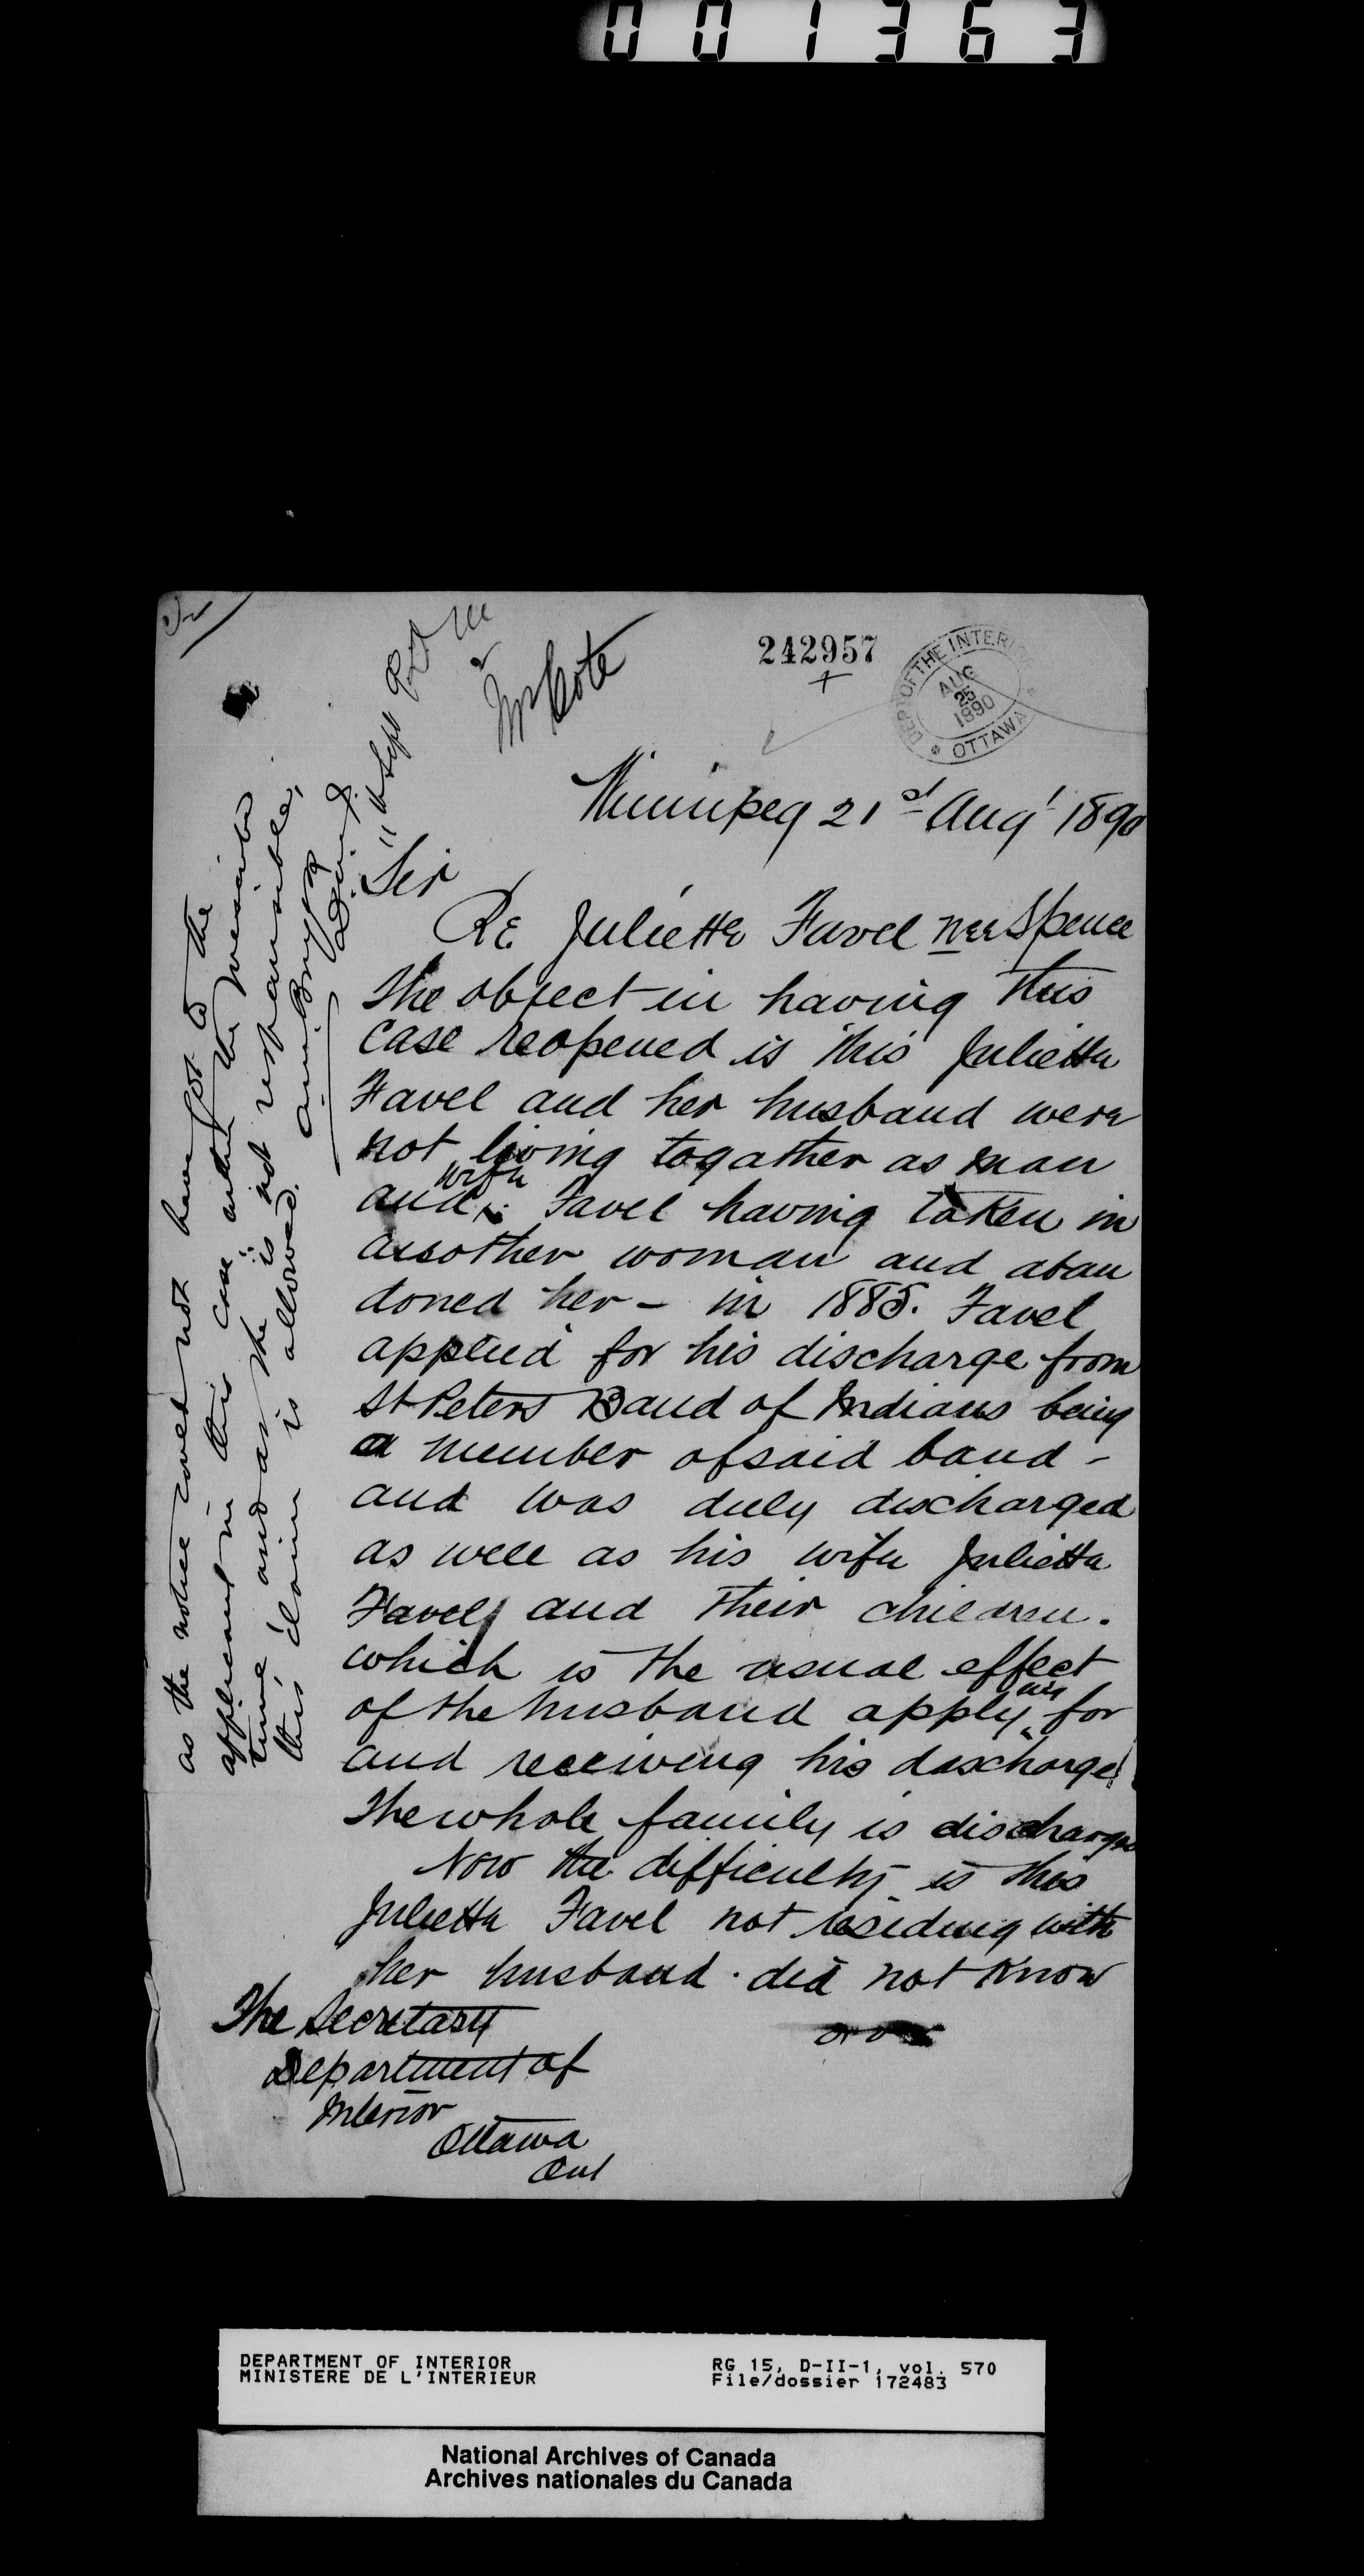 001363
242957
DEPT OF THE INTERIOR
AUG
25
1890
OTTAWA
Mr Cote
Winnipeg 21st Augt 1890
Sir
Re Juliette Favel nee Spence
The object in having this
case reopened is this Julietta
Favel and her husband were
not living togather as man
and wife Favel having taken in
another woman and aban
doned her - in 1885. Favel
applied for his discharge from
St Peters Band of Indians being
a member of said band -
and was duly discharged
as well as his wife Julietta
Favel, and their children.
which is the usual effect
of the husband applying for
and receiving his discharge
The whole family is discharged
Now the difficulty is this
Julietta Favel not residing with
her husband. did not know
The Secretary
Department of
Interior
Ottawa
Ont
as the notice could not have got to the
applicant in this case within the prescribed
time and as she is not responsible,
this claim is allowed.
DEPARTMENT OF INTERIOR
MINISTERE DE L'INTERIEUR
RG 15, D-II-1, vol. 570
File/dossier 172483
National Archives of Canada
Archives nationales du Canada